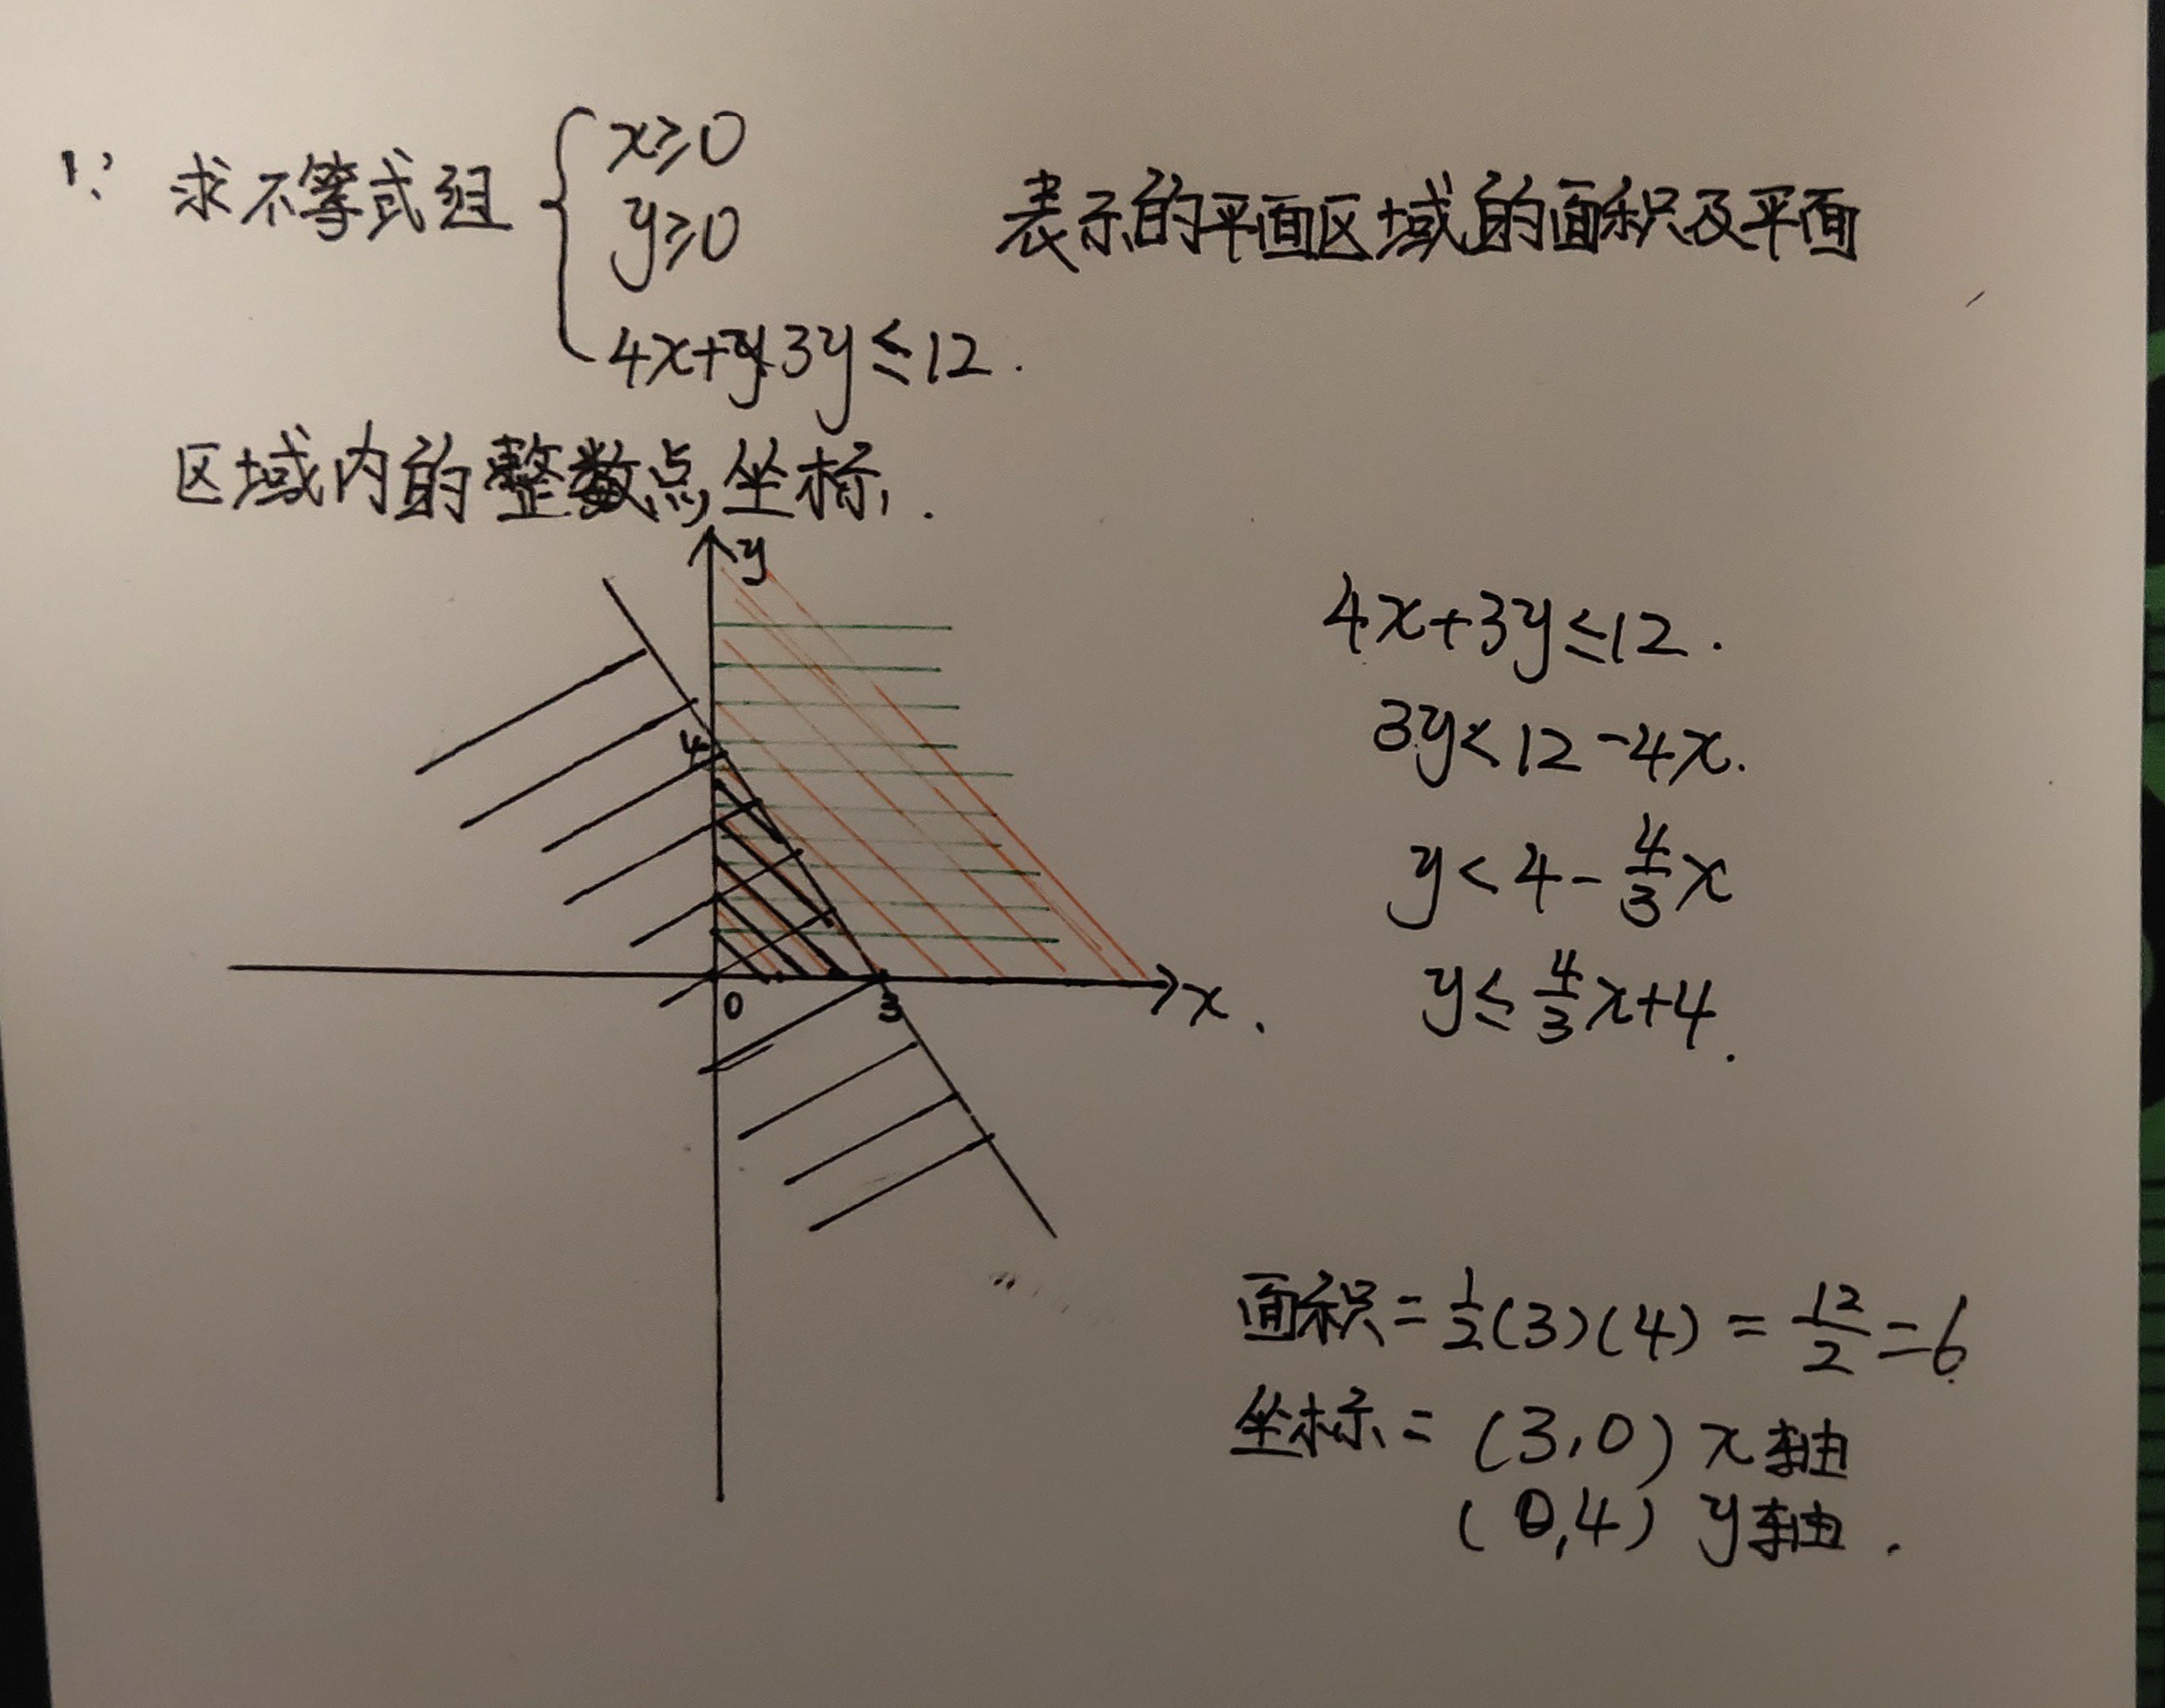 ∵ 求不等式组 { x≥0
y≥0
4x+3y≤12.
表示的平面区域的面积及平面
区域内的整数点坐标.
y
4
0
3
x.
4x+3y≤12.
3y<12-4x.
y<4-4/3x
y≤4/3x+4.
面积=1/2(3)(4)=12/2=6
坐标=(3,0) x轴
(0,4) y轴.